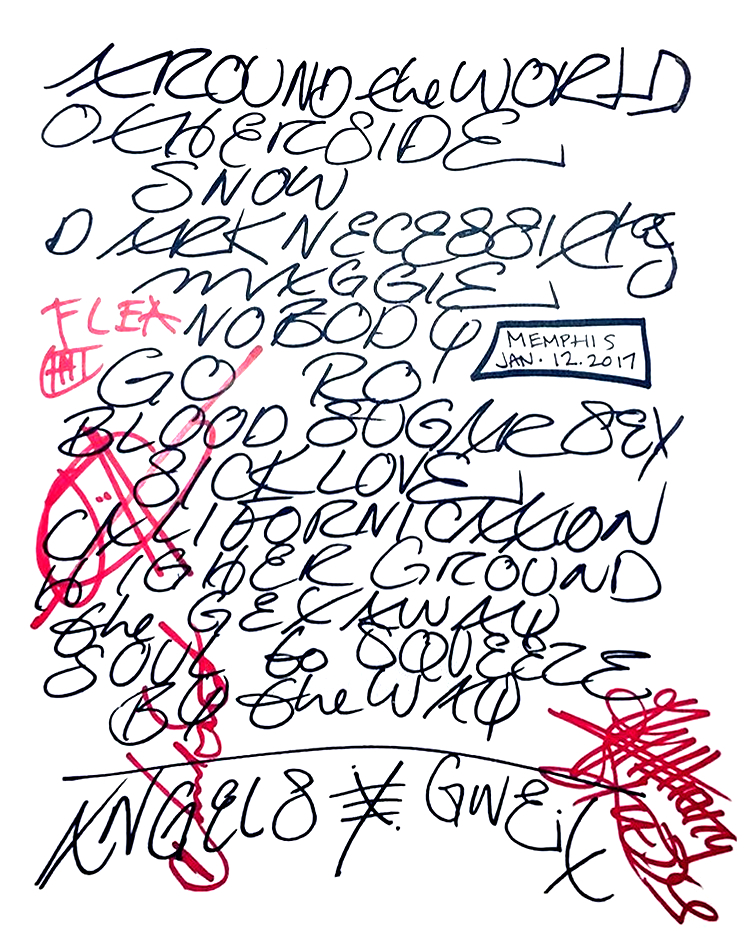 AROUND the WORLD
OTHERSIDE
SNOW
DARK NECESSITIES
MAGGIE
FLEA NOBODY
MEMPHIS
JAN. 12. 2017
GO RO
BLOOD SUGAR SEX
SICK LOVE
CALIFORNICATION
HIGHER GROUND
the GETAWAY
SOUL to SQUEEZE
BY the WAY
ANGELS GWEiX